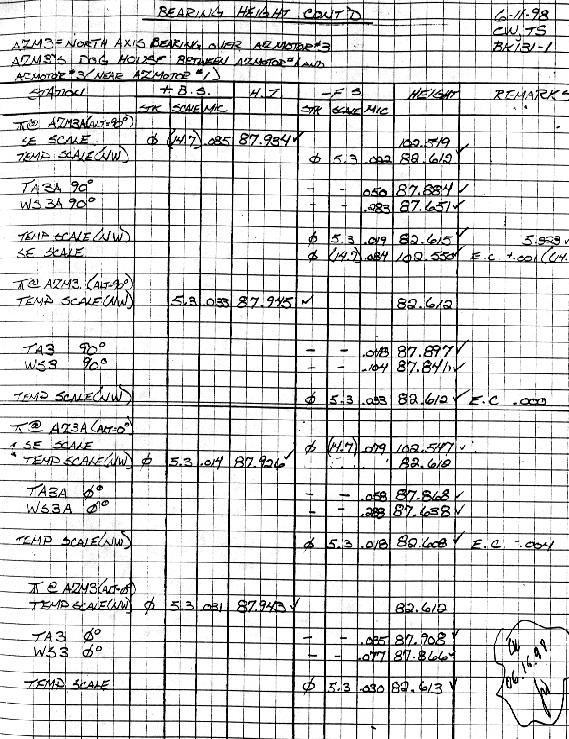 BEARING HEIGHT CONT'D
6-11-98
CW, TS
BK131-1
AZM3 = NORTH AXIS BEARING OVER AZ MOTOR #3
AZM3'S DOG HOUSE BETWEEN AZ MOTOR # AND
AZ MOTOR #3 (NEAR AZ MOTOR #1)
STATION + B.S. H.I. - F S HEIGHT REMARKS
STK SCALE MIC STK SCALE MIC
π @ AZM3A (ALT=90°)
SE SCALE ϕ (14.7) .085 87.934 ✓ 102.549
TEMP SCALE (NW) ϕ 5.3 .022 82.612 ✓
TA3A 90° - - .050 87.884 ✓
WS3A 90° - - .283 87.651 ✓
TEMP SCALE (NW) ϕ 5.3 .019 82.615 ✓
SE SCALE ϕ (14.7) .084 102.550 ✓ E.C +.001
π @ AZM3 (ALT=90°)
TEMP SCALE (NW) 5.3 .033 87.945 ✓ 82.612
TA3 90° - - .048 87.897 ✓
WS3 90° - - .104 87.841 ✓
TEMP SCALE (NW) ϕ 5.3 .033 82.612 ✓ E.C .000
π @ AZ3A (ALT=0°)
* SE SCALE ϕ (14.7) .079 102.547 ✓
* TEMP SCALE (NW) ϕ 5.3 .014 87.926 ✓ 82.612
TA3A ϕ° - - .058 87.868 ✓
WS3A ϕ° - - .288 87.638 ✓
TEMP SCALE (NW) ϕ 5.3 .018 82.608 ✓ E.C -.004
π @ AZM3 (ALT=ϕ°)
TEMP SCALE (NW) ϕ 5.3 .031 87.943 ✓ 82.612
TA3 ϕ° - - .035 87.908 ✓
WS3 ϕ° - - .077 87.866 ✓
TEMP SCALE ϕ 5.3 .030 82.613 ✓
06.16.98